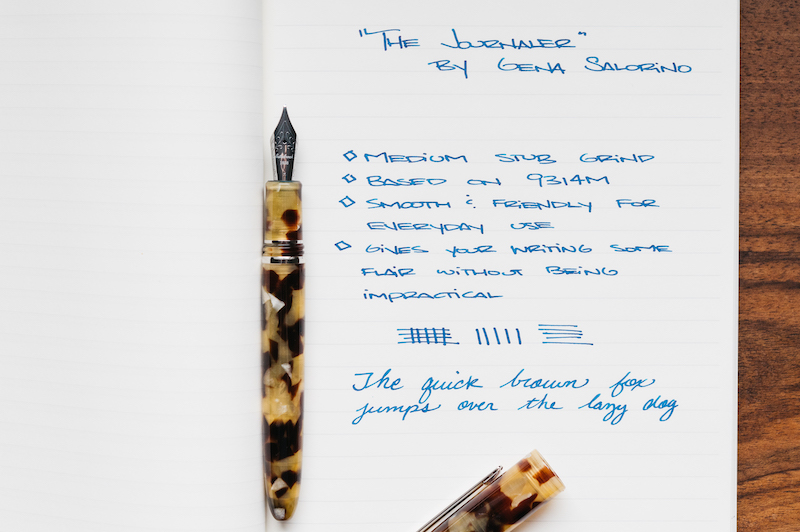 "The Journaler"
by Gena Salorino
◇ Medium stub grind
◇ Based on 9314M
◇ Smooth & friendly for
everyday use
◇ Gives your writing some
flair without being
impractical
The quick brown fox
jumps over the lazy dog